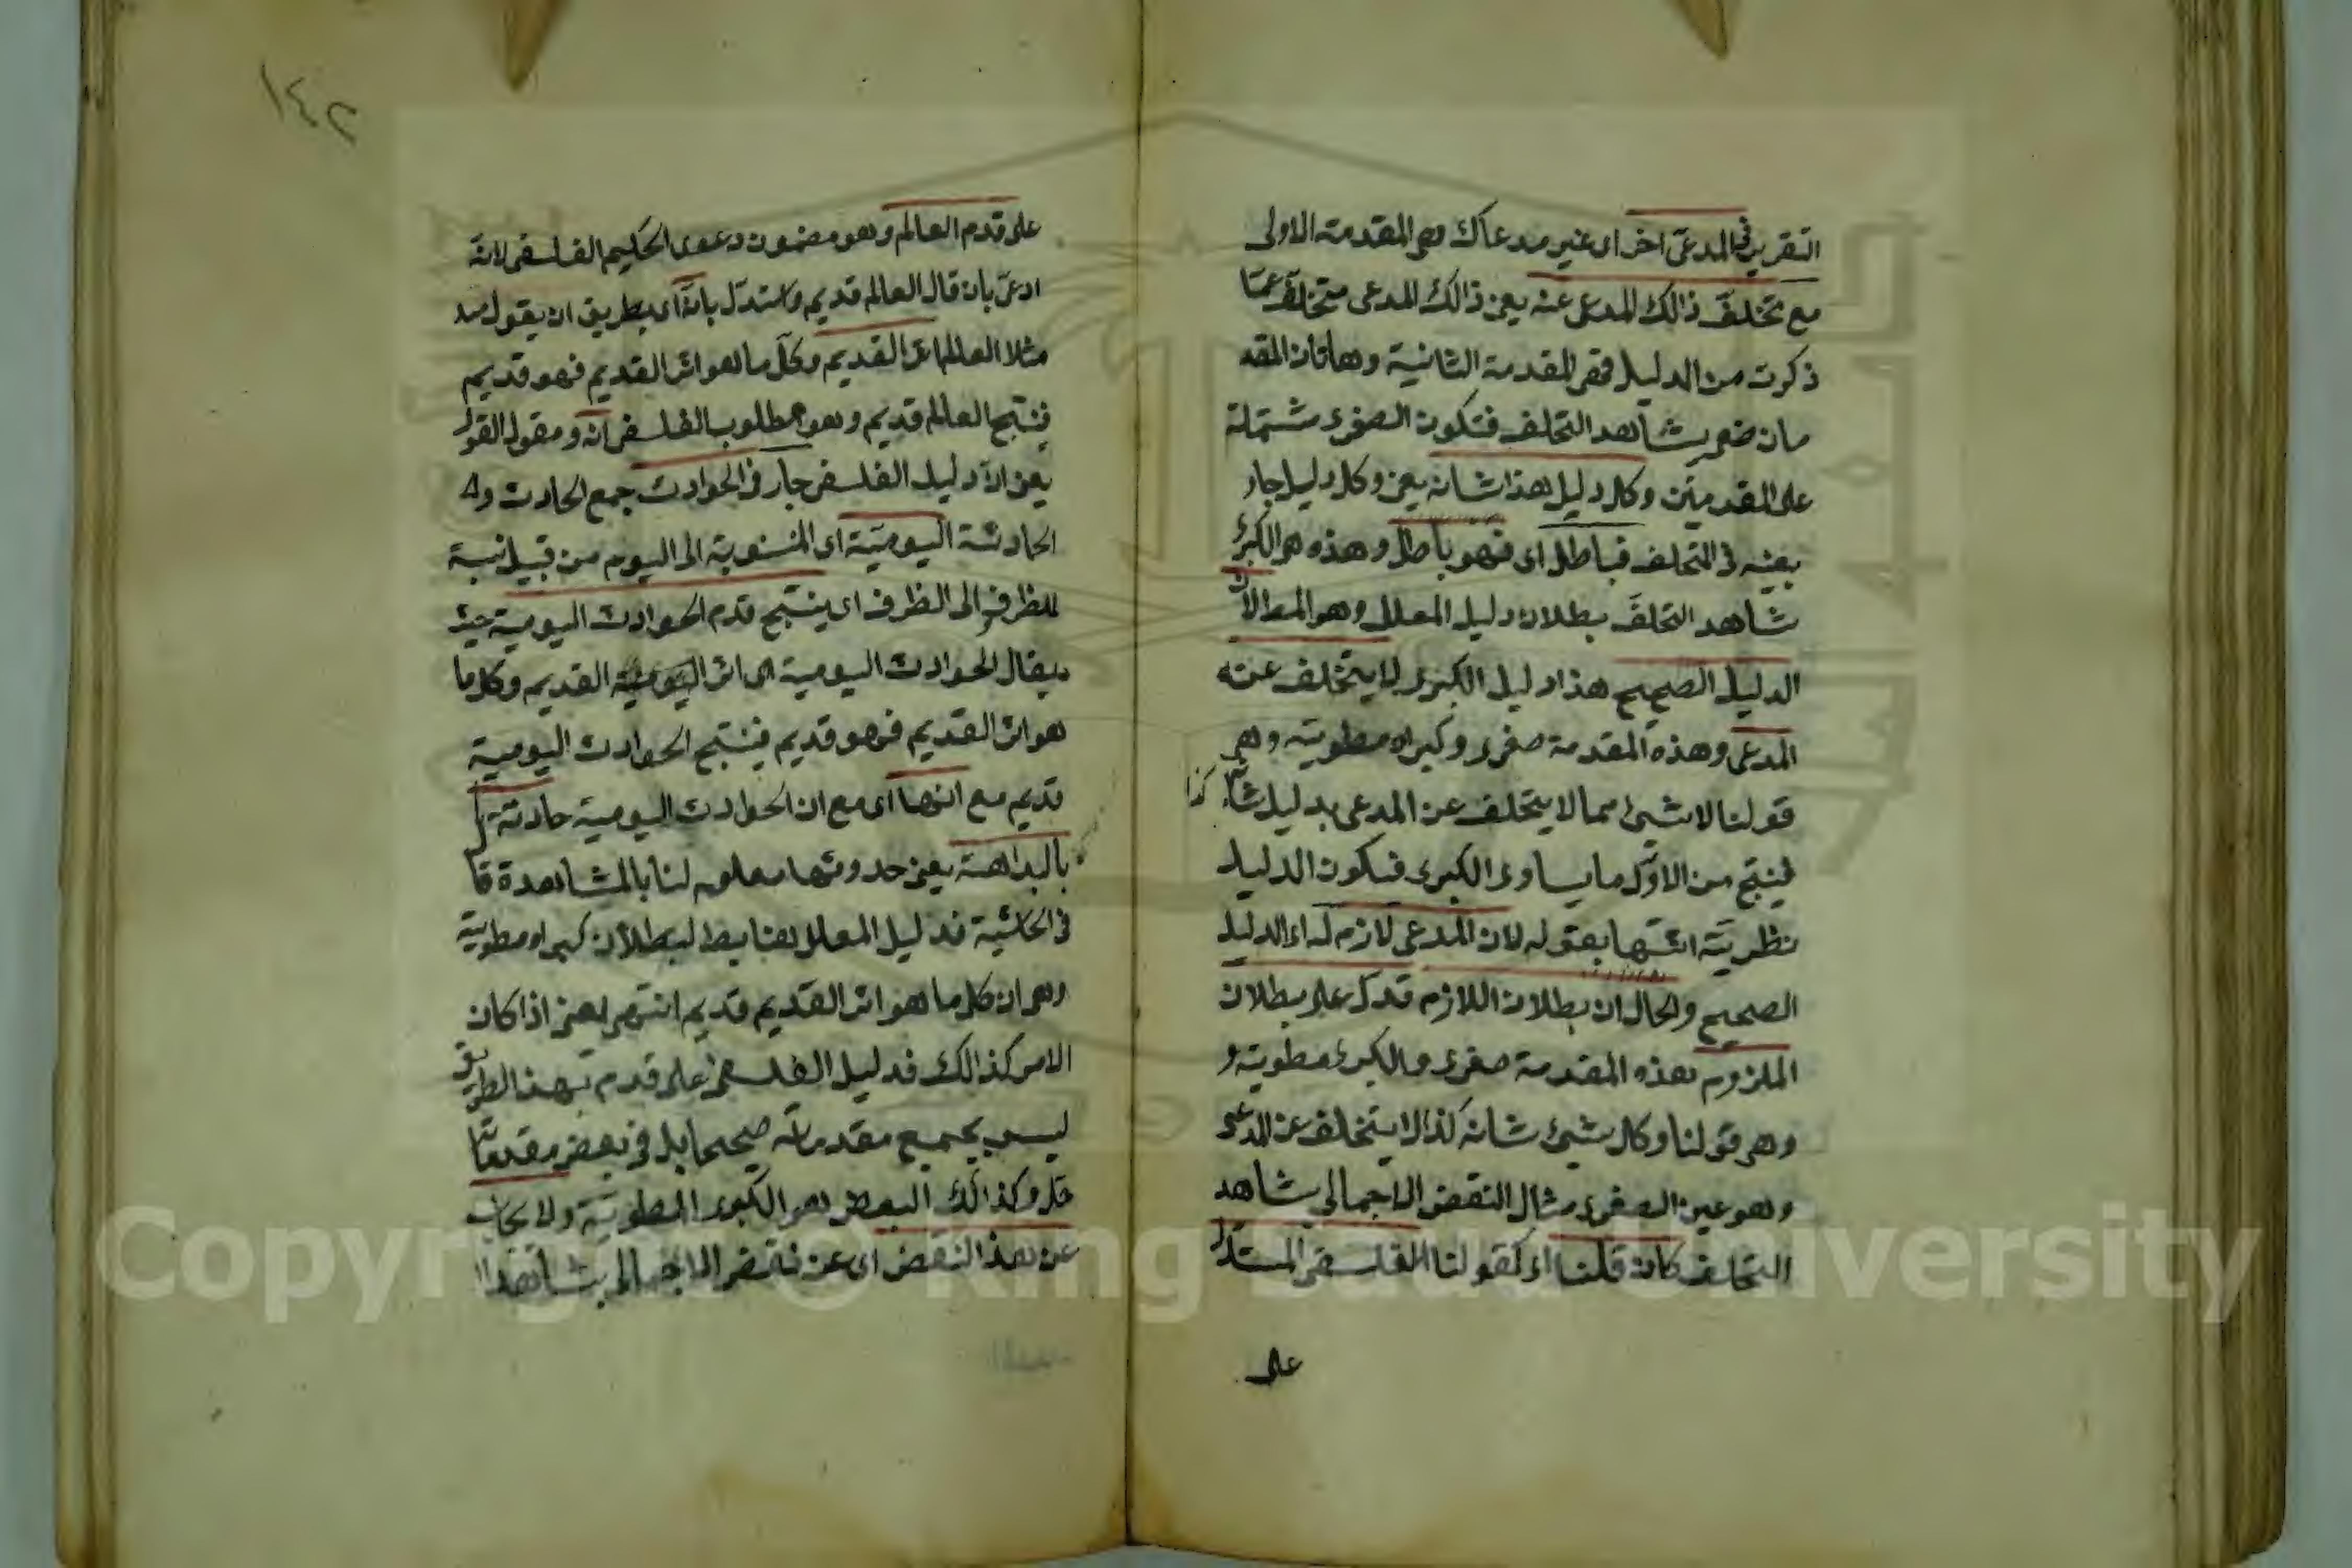 التقرير في المدعى اخر اى غير مدعاك وهي المقدمة الاولى
مع تخلف ذالك المدعى عنه يعني ذالك المدعى متخلف عما
ذكرت من الدليل فهي المقدمة الثانية وهاتان المقد
متان شاهد التخلف فتكون الصغرى مشتملة
على المقدمتين وكل دليل هذا شانه يعني وكل دليل جار
بعينه في التخلف فباطل اى فهو باطل وهذه هي الكبرى
شاهد التخلف بطلان دليل المعلل وهو المط لان
الدليل الصحيح هذا دليل الكبرى لا يتخلف عنه
المدعى وهذه المقدمة صغرى وكبراه مطوية وهي
قولنا لا شيئ مما لا يتخلف عن المدعى بدليل شانه كذا
فينتج من الاول ما يساوى الكبرى فيكون الدليل
نظرية اثبتها بقوله لان المدعى لازم له اى الدليل
الصحيح والحال ان بطلان اللازم قد دل على بطلان
الملزوم هذه المقدمة صغرى والكبرى مطوية و
وهي قولنا وكل شيئ شانه كذا لا يتخلف عن المدعى
وهو عين الصغرى مثال النقض الاجمالي بشاهد
التخلف كان قلنا اى كقولنا الفلسفي المستدل
على
١٤٢
على قدم العالم وهو مضمون دعوى الحكيم الفلسفي لانه
ادعى بان قال العالم قديم واستدل بانه اى بطريق ان يقول
مثلا العالم اثر القديم وكل ما هو اثر القديم فهو قديم
فينتج العالم قديم وهو مطلوب الفلسفي انه ومقول القول
يعني ان دليل الفلسفي جار في الحوادث جمع الحادث و
الحادثة اليومية اى المنسوبة الى اليوم من قبيل نسبة
المظروف الى الظرف اى ينتج قدم الحوادث اليومية حيث
يقال الحوادث اليومية اثر القديم وكل ما
هو اثر القديم فهو قديم فينتج الحوادث اليومية
قديم مع انها اى مع ان الحوادث اليومية حادثة
بالبداهة يعني حدوثها معلوم لنا بالمشاهدة قا
في الحاشية فدليل المعلل هنا يبطل لبطلان كبراه مطوية
وهي ان كل ما هو اثر القديم قديم انتهى يعني اذا كان
الامر كذالك فدليل الفلسفي على قدم بهذا الطريق
ليس بجميع مقدماته صحيحا بل في بعض مقدماته
خلل وكذالك البعض هو الكبرى المطوية ولا يجاب
عن هذا النقض اى عن نقض الاجمالى بشاهد ا